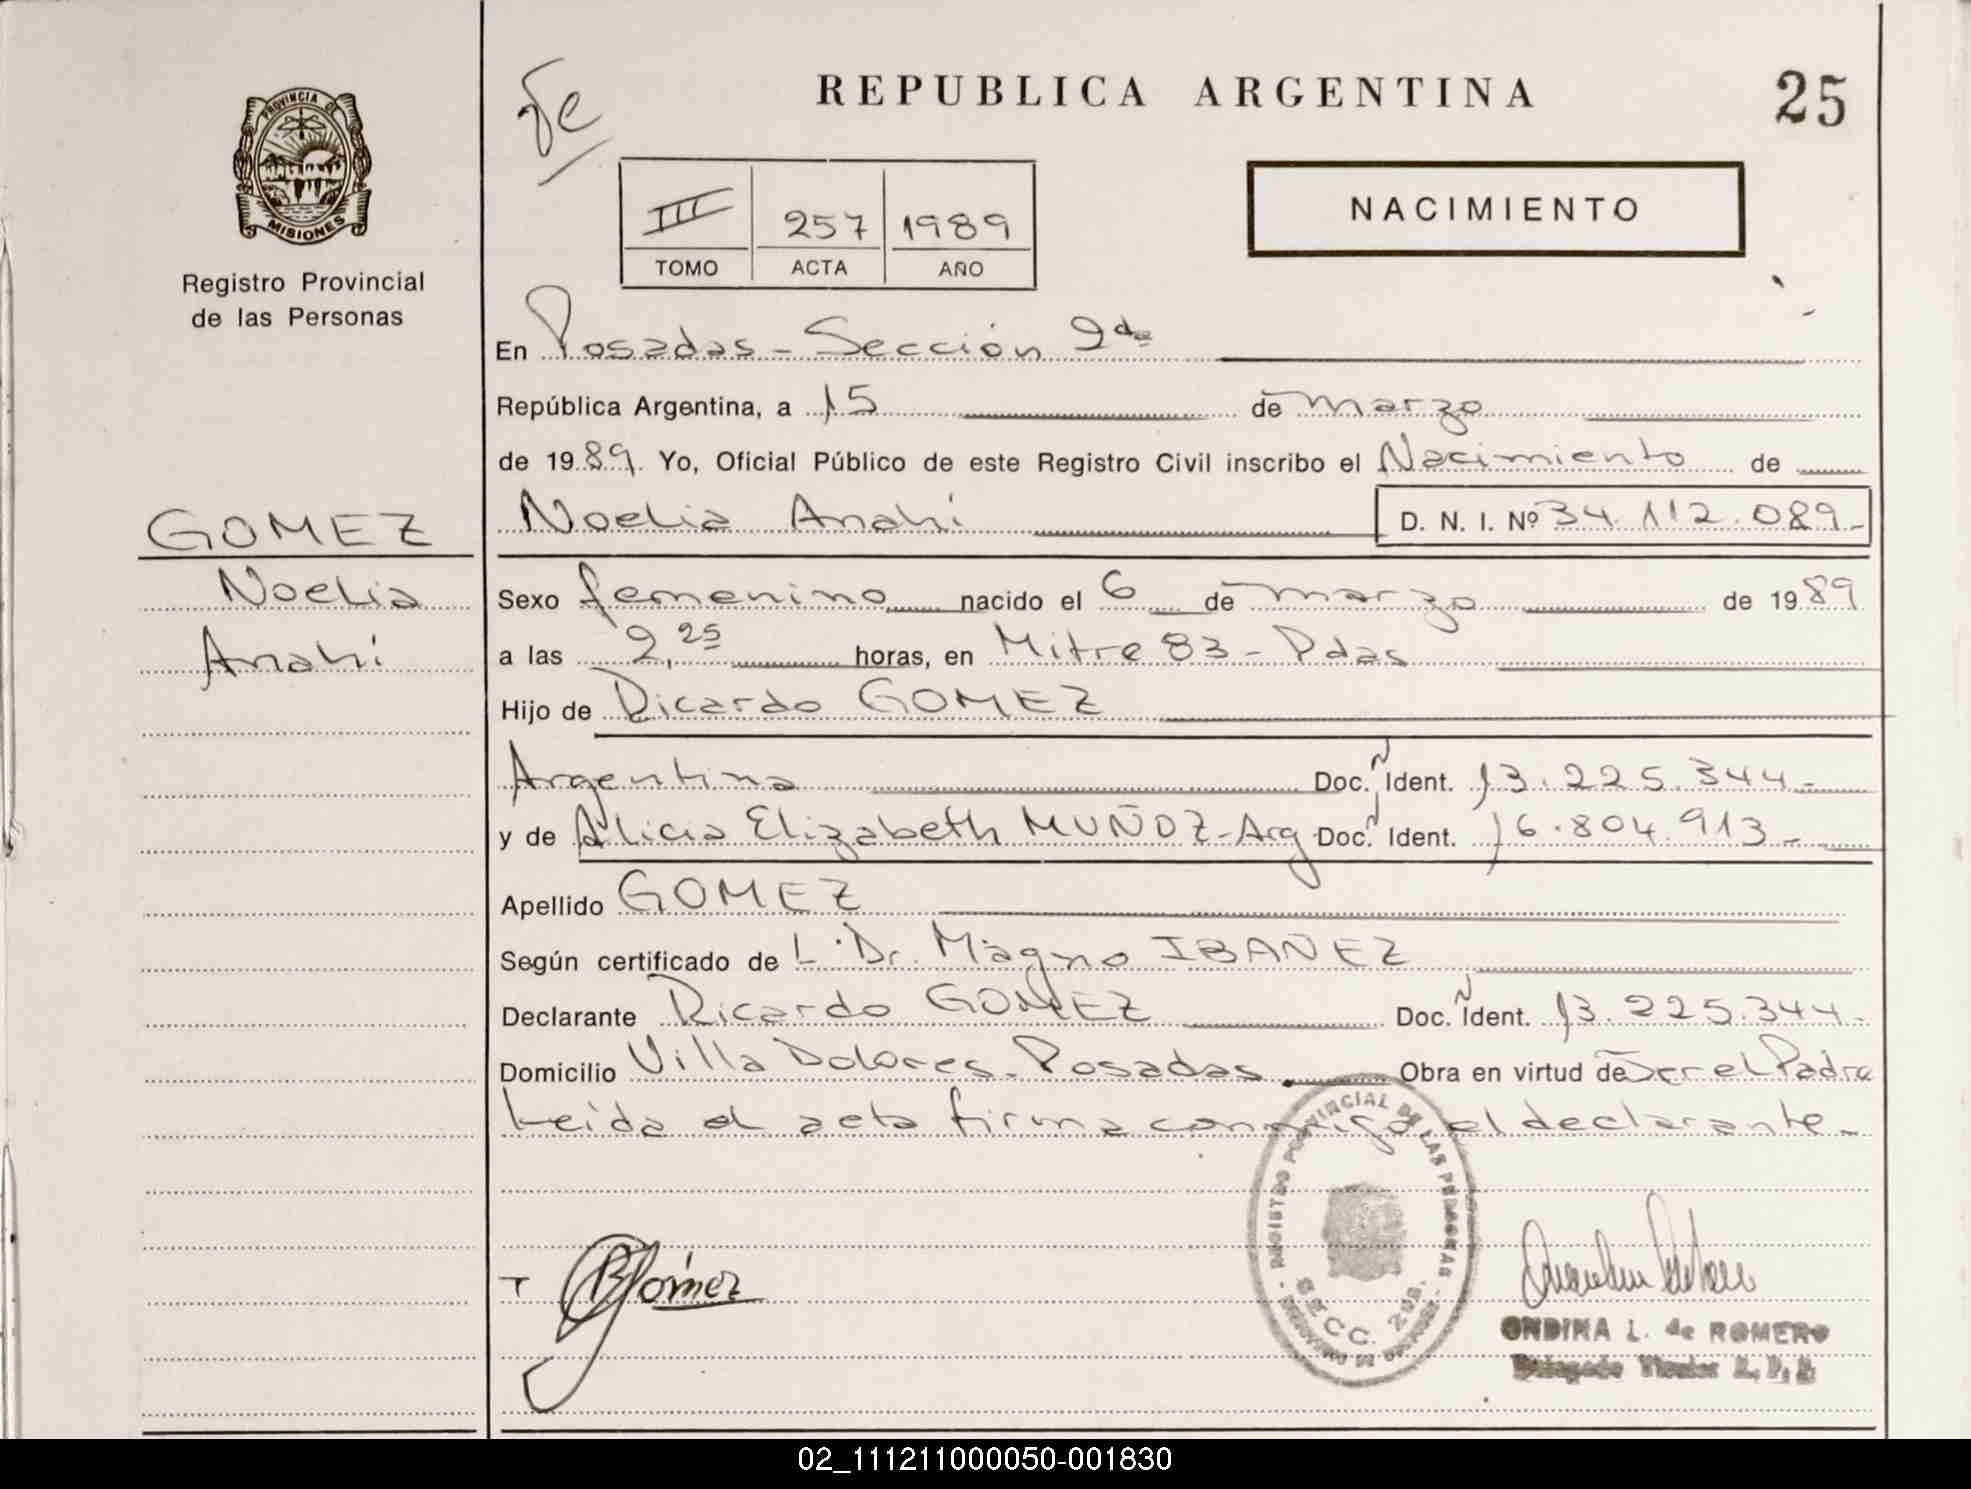 REPUBLICA ARGENTINA
25
PROVINCIA DE
MISIONES
Registro Provincial
de las Personas
III 257 1989
TOMO ACTA AÑO
NACIMIENTO
En Posadas - Sección 2da
República Argentina, a 15 de marzo
de 1989. Yo, Oficial Público de este Registro Civil inscribo el Nacimiento de
Noelia Anahí D. N. I. Nº 34.112.089-
GOMEZ
Noelia
Anahí
Sexo femenino nacido el 6 de marzo de 1989
a las 2,25 horas, en Mitre 83 - Pdas
Hijo de Ricardo GOMEZ
Argentina Doc. Ident. 13.225.344-
y de Alicia Elizabeth MUÑOZ - Arg Doc. Ident. 16.804.913-
Apellido GOMEZ
Según certificado de L Dr. Magno IBAÑEZ
Declarante Ricardo GOMEZ Doc. Ident. 13.225.344-
Domicilio Villa Dolores - Posadas Obra en virtud de Ser el Padre
Leida el acta firma conmigo el declarante -
REGISTRO PROVINCIAL DE LAS PERSONAS
SECC. 2da.
Gómez
ONDINA L. de ROMERO
02_111211000050-001830